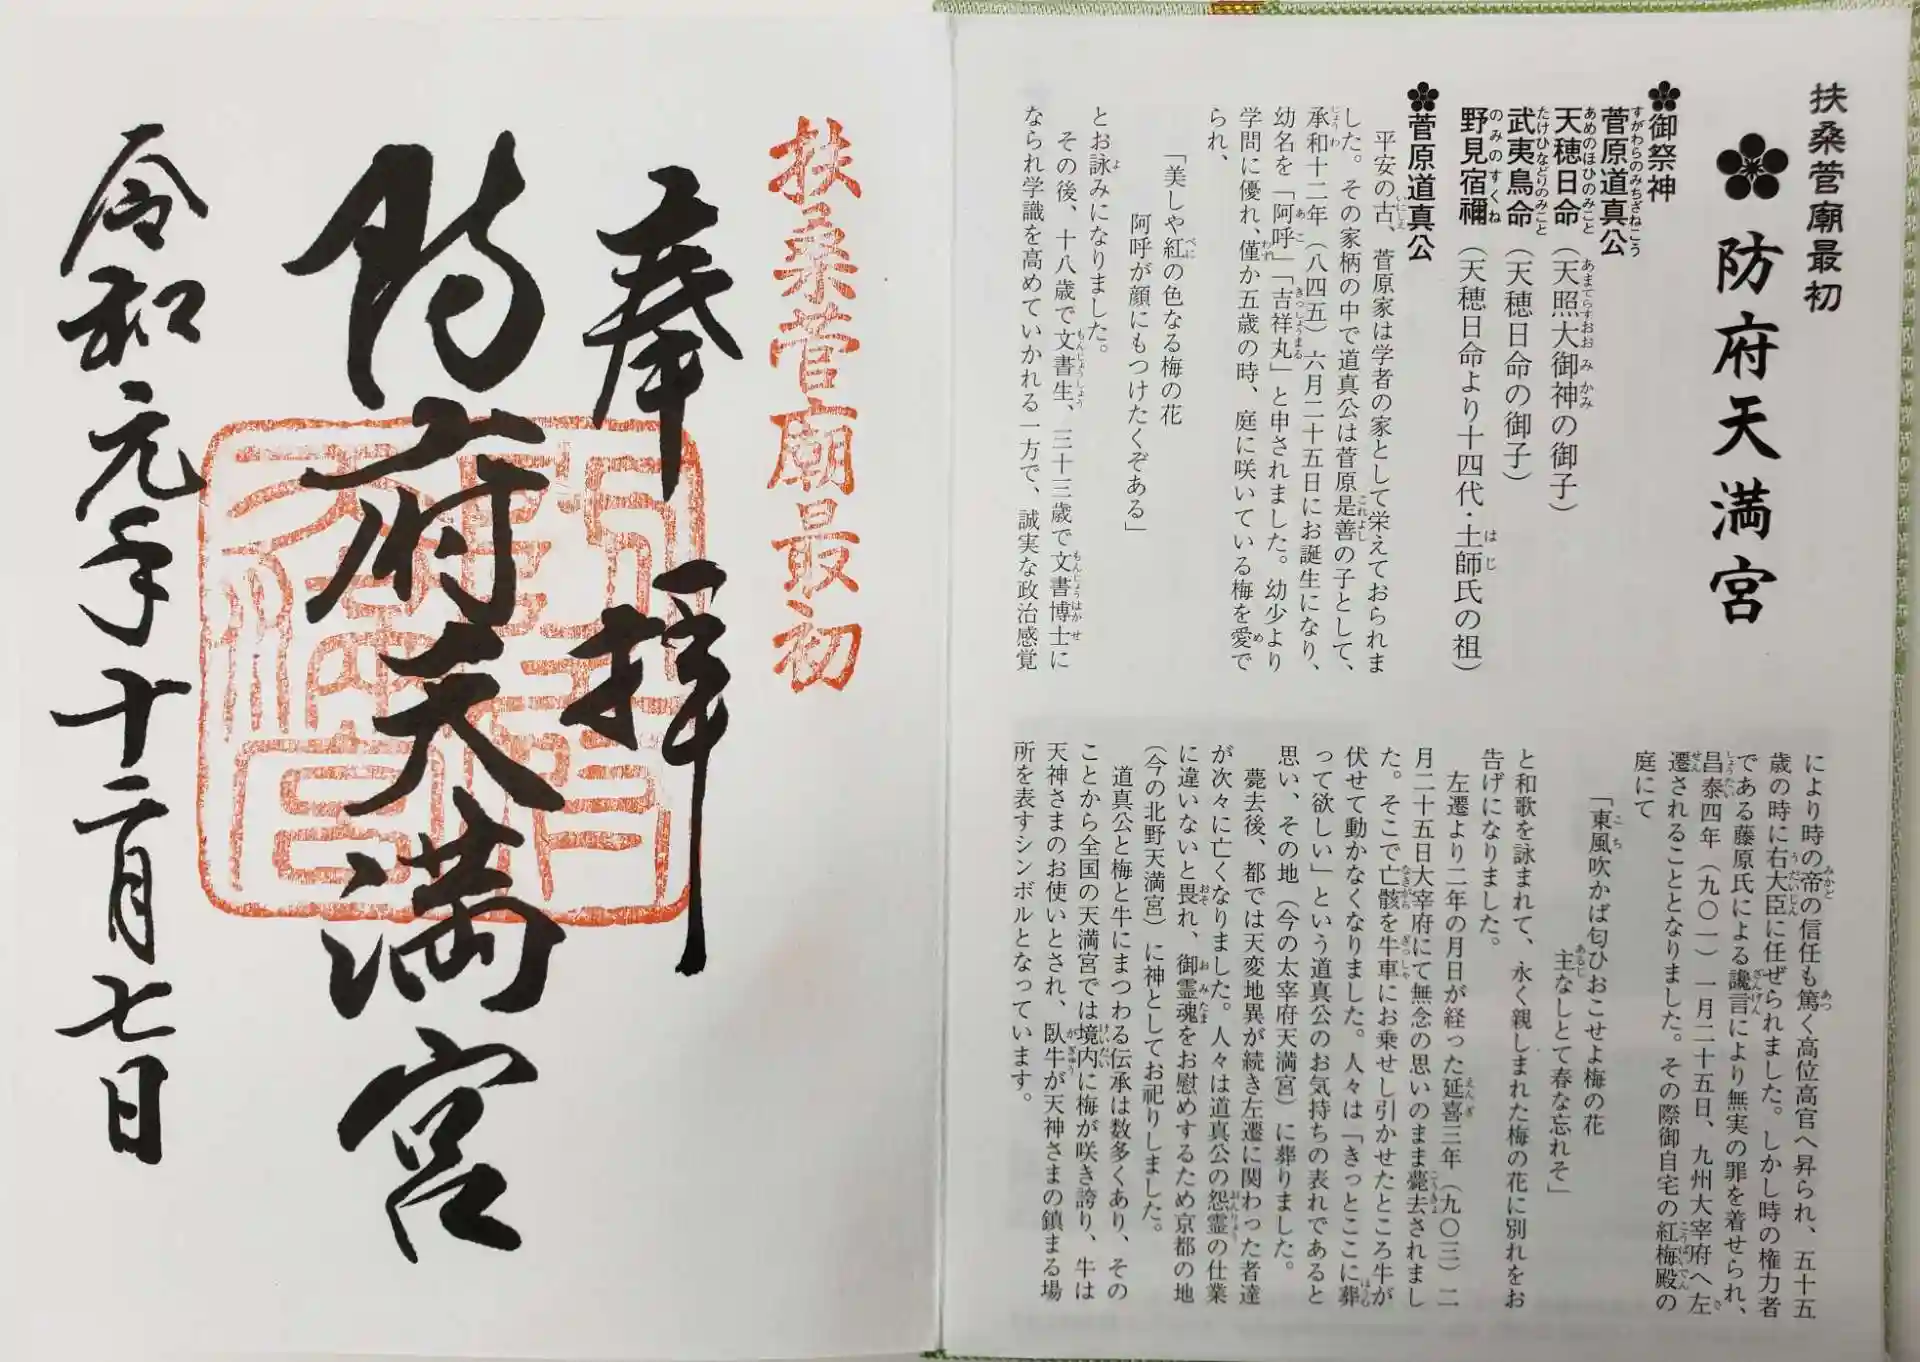 扶桑菅廟最初
防府天満宮
御祭神
菅原道真公
すがわらのみちざねこう
天穂日命（天照大御神の御子）
あめのほひのみこと
あまてらすおおみかみ
武夷鳥命（天穂日命の御子）
たけひなどりのみこと
野見宿禰（天穂日命より十四代・土師氏の祖）
のみのすくね
はじ
菅原道真公
平安の古、菅原家は学者の家として栄えておられま
いにしえ
した。その家柄の中で道真公は菅原是善の子として、
これよし
承和十二年（八四五）六月二十五日にお誕生になり、
じょうわ
幼名を「阿呼」「吉祥丸」と申されました。幼少より
あこ
きっしょうまる
学問に優れ、僅か五歳の時、庭に咲いている梅を愛で
わずか
め
られ、
「美しや紅の色なる梅の花
べに
阿呼が顔にもつけたくぞある」
とお詠みになりました。
よ
その後、十八歳で文書生、三十三歳で文書博士に
もんじょうしょう
もんじょうはかせ
なられ学識を高めていかれる一方で、誠実な政治感覚
により時の帝の信任も篤く高位高官へ昇られ、五十五
みかど
あつ
歳の時に右大臣に任ぜられました。しかし時の権力者
うだいじん
である藤原氏による讒言により無実の罪を着せられ、
ざんげん
昌泰四年（九〇一）一月二十五日、九州大宰府へ左
しょうたい
さ
遷されることとなりました。その際御自宅の紅梅殿の
せん
こうばいでん
庭にて
「東風吹かば匂ひおこせよ梅の花
こち
主なしとて春な忘れそ」
あるじ
と和歌を詠まれて、永く親しまれた梅の花に別れをお
告げになりました。
左遷より二年の月日が経った延喜三年（九〇三）二
えんぎ
月二十五日大宰府にて無念の思いのまま薨去されまし
こうきょ
た。そこで亡骸を牛車にお乗せし引かせたところ牛が
なきがら
ぎっしゃ
伏せて動かなくなりました。人々は「きっとここに葬
ほうむ
って欲しい」という道真公のお気持ちの表れであると
思い、その地（今の太宰府天満宮）に葬りました。
薨去後、都では天変地異が続き左遷に関わった者達
が次々に亡くなりました。人々は道真公の怨霊の仕業
おんりょう
に違いないと畏れ、御霊魂をお慰めするため京都の地
おそ
おみたま
（今の北野天満宮）に神としてお祀りしました。
道真公と梅と牛にまつわる伝承は数多くあり、その
ことから全国の天満宮では境内に梅が咲き誇り、牛は
けいだい
天神さまのお使いとされ、臥牛が天神さまの鎮まる場
がぎゅう
所を表すシンボルとなっています。
扶桑菅廟最初
奉拝
防府天満宮
令和元年十二月七日